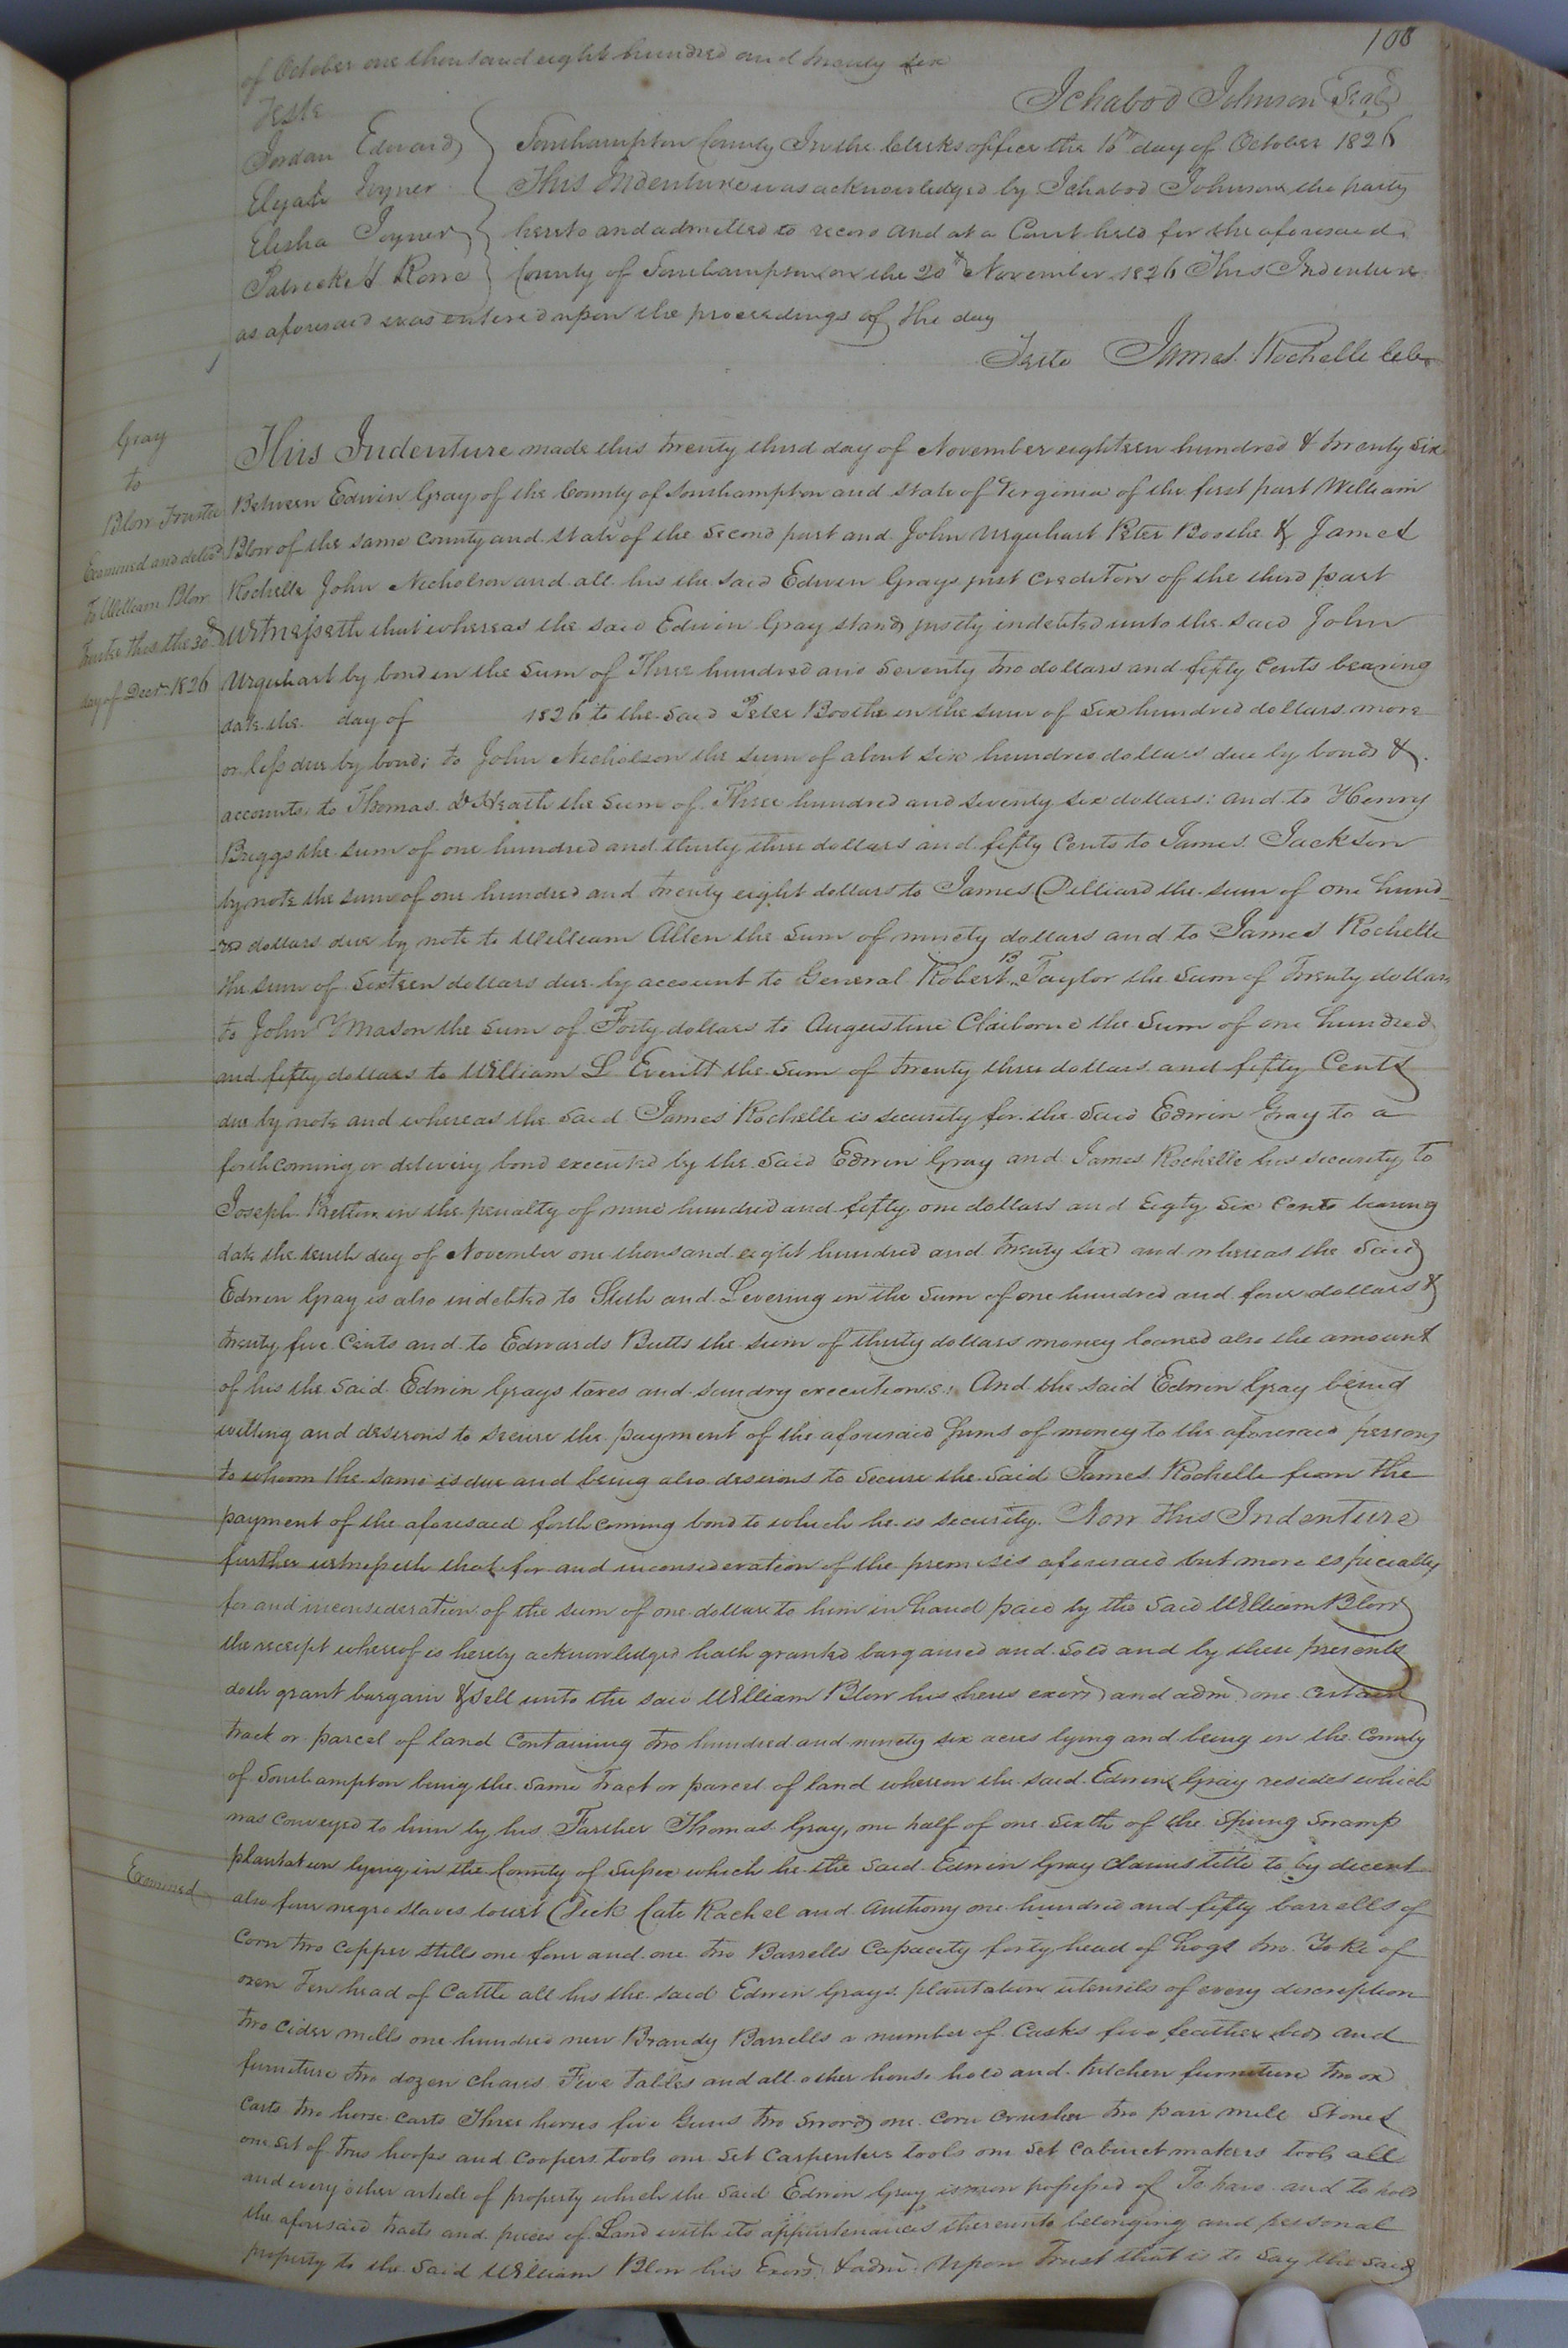 108
of October one thousand eight hundred and twenty six
Teste
Ichabod Johnson Seal
Jordan Edwards
Elijah Joyner
Elisha Joyner
Patrick H Rone
Southampton County In the Clerks office the 16th day of October 1826
This Indenture was acknowledged by Ichabod Johnson the party
hereto and admitted to record and at a Court held for the aforesaid
County of Southampton on the 20th November 1826 This Indenture
as aforesaid was entered upon the proceedings of the day
Teste James Rochelle Clk
Gray
to
Blow Trustee
Examined and deld
To William Blow
trustee this the 30th
day of Decr. 1826
This Indenture made this twenty third day of November eighteen hundred & twenty six
Between Edwin Gray of the County of Southampton and State of Virginia of the first part William
Blow of the same county and state of the second part and John Urquhart Peter Boothe & James
Rochelle John Nicholson and all his the said Edwin Grays just creditors of the third part
Witnesseth that whereas the said Edwin Gray stands justly indebted unto the said John
Urquhart by bond in the sum of Three hundred and seventy two dollars and fifty cents bearing
date the day of 1826 to the said Peter Boothe in the sum of six hundred dollars more
or less due by bond; to John Nicholson the sum of about six hundred dollars due by bonds &
accounts, to Thomas D Heath the sum of Three hundred and seventy six dollars: and to Henry
Briggs the sum of one hundred and thirty three dollars and fifty Cents to James Jackson
by note the sum of one hundred and twenty eight dollars to James Dilliard the sum of one hund
-red dollars due by note to William Allen the sum of ninety dollars and to James Rochelle
the sum of sixteen dollars due by account to General Robert B Taylor the sum of twenty dollars
to John Y Mason the sum of Forty dollars to Augustine Claiborne the sum of one hundred
and fifty dollars to William L Everitt the sum of twenty three dollars and fifty Cents
due by note and whereas the said James Rochelle is security for the said Edwin Gray to a
forthcoming or delivery bond executed by the said Edwin Gray and James Rochelle his security to
Joseph in the penalty of nine hundred and fifty one dollars and Eigty six Cents bearing
date the tenth day of November one thousand eight hundred and twenty six and whereas the said
Edwin Gray is also indebted to Stith and Levering in the sum of one hundred and four dollars &
twenty five Cents and to Edwards Butts the sum of thirty dollars money loaned also the amount
of his the said Edwin Grays taxes and sundry executions: And the said Edwin Gray being
willing and desirous to secure the payment of the aforesaid sums of money to the aforesaid persons
to whom the same is due and being also desirous to secure the said James Rochelle from the
payment of the aforesaid forthcoming bond to which he is security. Now this Indenture
further witnesseth that for and in consideration of the premises aforesaid but more especially
for and in consideration of the sum of one dollar to him in hand paid by the said William Blow
the receipt whereof is hereby acknowledged hath granted bargained and sold and by these presents
doth grant bargain & sell unto the said William Blow his heirs exors and adm. one certain
tract or parcel of land containing two hundred and ninety six acres lying and being in the County
of Southampton being the same tract or parcel of land whereon the said Edwin Gray resides which
was conveyed to him by his Farther Thomas Gray, one half of one sixth of the Spring Swamp
plantation lying in the County of Sussex which he the said Edwin Gray claims title to by decent
Examined
also four negro slaves to wit Dick Cate Rachel and Anthony one hundred and fifty barrells of
corn two copper stills one four and one two Barrells Capacity forty head of hogs two Yoke of
oxen Ten head of Cattle all his the said Edwin Grays plantation utensils of every description
two cider mills one hundred new Brandy Barrells a number of Casks five feather beds and
furniture two dozen chairs Five tables and all other house hold and kitchen furniture two ox
carts two horse carts Three horses five Guns two Swords one corn crusher two pair mill Stones
one set of trus hoops and Coopers tools one set Carpenters tools one set cabinet makers tools all
and every other article of property which the said Edwin Gray is now possessed of To have and to hold
the aforesaid tracts and pieces of Land with its appurtenances thereunto belonging and personal
property to the said William Blow his Exors. & adm. Upon Trust that is to say the said